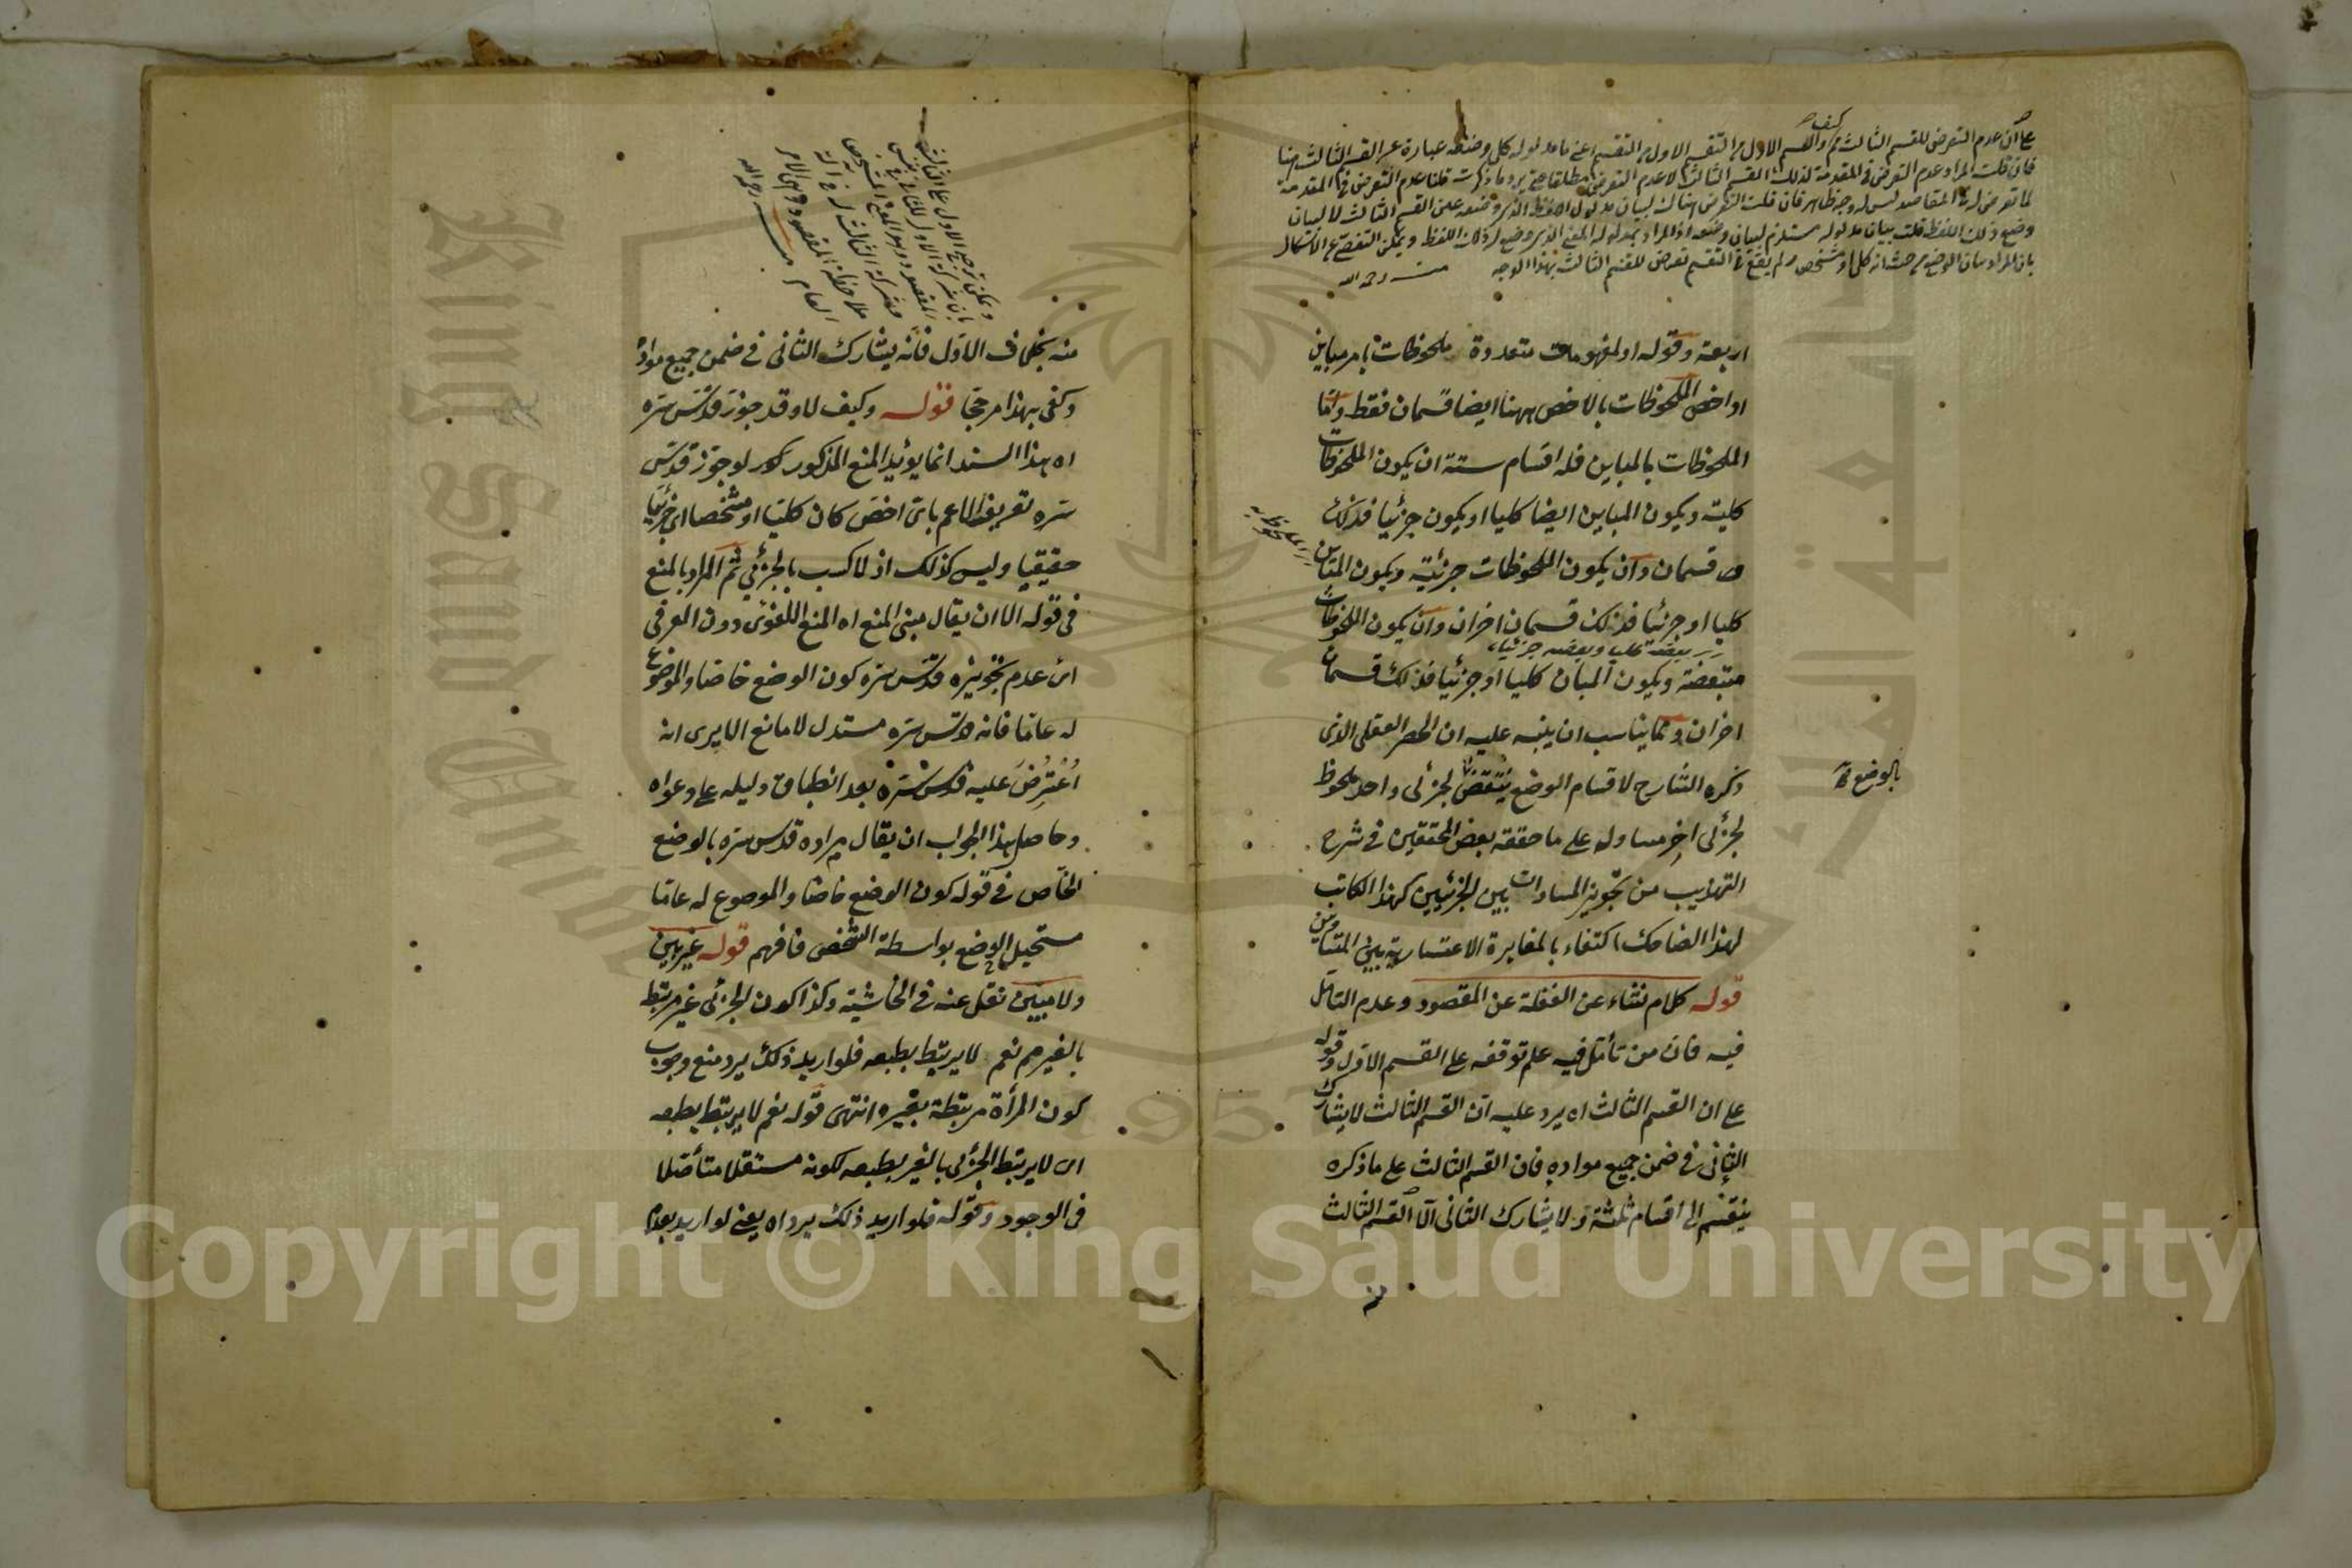 على ان عدم التعرض للقسم الثالث
فان قلت المراد عدم التعرض في المقدمة لذلك القسم الثالث لا عدم التعرض مطلقا حتى يرد ما ذكرت قلنا عدم التعرض في المقدمة
لما تعرض له في المقاصد ليس له وجه ظاهر فان قلت التعرض هناك لبيان مدلول اللفظ الذي وضعه على القسم الثالث لا لبيان
وضع ذلك اللفظ قلت بيان مدلوله مستلزم لبيان وضعه اذ المراد بمدلوله المعنى الذي وضع له ذلك اللفظ ويمكن التفصي عن الاشكال
بان المراد بيان الوضع من حيث انه كلي او مشخص ولم يقع في التقسيم تعرض للقسم الثالث بهذا الوجه منه رحمه الله
اربعة وقوله او لمفهومات متعددة ملحوظات بامر مباين
او اخص الملحوظات بالاخص ههنا ايضا قسمان فقط واما
الملحوظات بالمباين فله اقسام ستة ان يكون الملحوظات
كلية ويكون المباين ايضا كليا او يكون جزئيا فذلك
قسمان وان يكون الملحوظات جزئية ويكون المباين
كليا او جزئيا فذلك قسمان اخران وان يكون الملحوظات
بعضه كليا وبعضه جزئيا
متبعضة ويكون المباين كليا او جزئيا فذلك قسمان
اخران ومما يناسب ان ينبه عليه ان الحصر العقلي الذي
ذكره الشارح لاقسام الوضع ينتقض لجزئى واحد ملحوظ
بالوضع
لجزئى اخر مساو له على ما حققه بعض المحققين في شرح
التهذيب من تجويز المساوات بين الجزئيين كهذا الكاتب
لهذا الضاحك اكتفاء بالمغايرة الاعتبارية بين المتساويين
قوله كلام نشاء عن الغفلة عن المقصود وعدم التامل
فيه فان من تأمل فيه علم توقفه على القسم الاول وقوله
على ان القسم الثالث اه يرد عليه ان القسم الثالث لا يشارك
الثانى في ضمن جميع مواده فان القسم الثالث على ما ذكره
ينقسم الى اقسام ثلثة ولا يشارك الثانى الا القسم الثالث
ويمكن ترجيح الاول على الثالث
بان شركة الاول للثاني في نفس
المقصود وهو المعنى المشخص
وشركة الثالث له في آلة
ملاحظة المقصود وهي الامر
العام منه رحمه الله
منه بخلاف الاول فانه يشارك الثانى في ضمن جميع مواده
وكفى بهذا مرجحا قوله وكيف لا وقد جوز قدس سره
اه هذا السند انما يؤيد المنع المذكور لو جوز قدس
سره تعريف الاعم باى اخص كان كليا او مشخصا اى جزئيا
حقيقيا وليس كذلك اذ لا كسب بالجزئي ثم المراد بالمنع
في قوله الا ان يقال مبنى المنع اه المنع اللغوى دون العرفى
اى عدم تجويزه قدس سره كون الوضع خاصا والموضوع
له عاما فانه قدس سره مستدل لا مانع الا يرى انه
اعترض عليه قدس سره بعد انطباق دليله على دعواه
وحاصل هذا الجواب ان يقال مراده قدس سره بالوضع
الخاص في قوله كون الوضع خاصا والموضوع له عاما
مستحيل الوضع بواسطة الشخص فافهم قوله غير بين
ولا مبين نقل عنه في الحاشية وكذا كون الجزئى غير مرتبط
بالغير مم نعم لا يرتبط بطبعه فلو اريد ذلك يرد منع وجوب
كون المرأة مرتبطة بغيره انتهى قوله نعم لا يرتبط بطبعه
اى لا يرتبط الجزئى بالغير بطبعه لكونه مستقلا متأصلا
في الوجود وقوله فلو اريد ذلك يرد اه يعني لو اريد بعدم
Copyright © King Saud University
King Saud University
1957